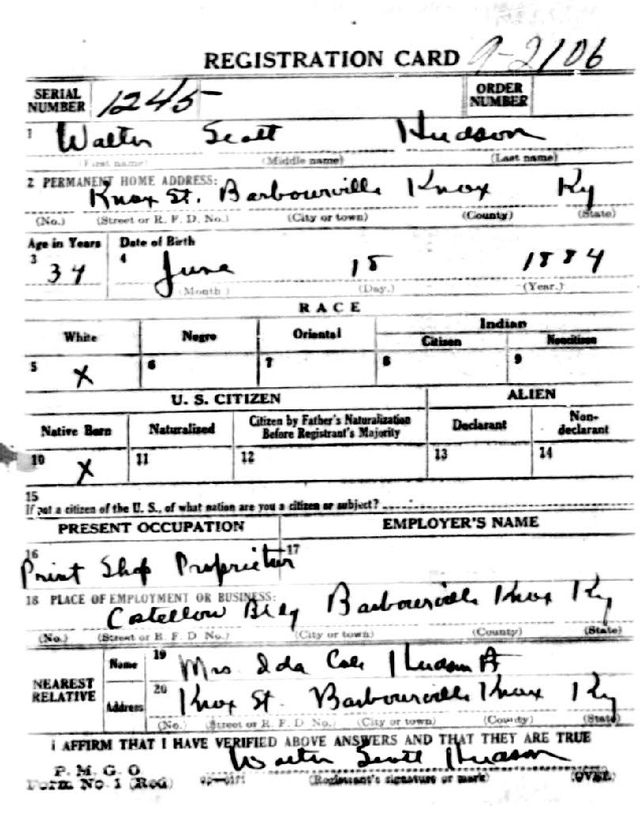 REGISTRATION CARD 9-2106
SERIAL NUMBER 1245 ORDER NUMBER
1 Walter Scott Hudson
(First name) (Middle name) (Last name)
2 PERMANENT HOME ADDRESS:
Knox St. Barbourville Knox Ky
(No.) (Street or R. F. D. No.) (City or town) (County) (State)
Age in Years Date of Birth
3 34 4 June 15 1884
(Month) (Day.) (Year.)
RACE
White Negro Oriental Indian
Citizen Noncitizen
5 X 6 7 8 9
U. S. CITIZEN ALIEN
Native Born Naturalized Citizen by Father's Naturalization Before Registrant's Majority Declarant Non-declarant
10 X 11 12 13 14
15
If not a citizen of the U. S., of what nation are you a citizen or subject?
PRESENT OCCUPATION EMPLOYER'S NAME
16 Print Shop Proprietor 17
18 PLACE OF EMPLOYMENT OR BUSINESS:
Bldg Barbourville Knox Ky
(No.) (Street or R. F. D. No.) (City or town) (County) (State)
NEAREST RELATIVE
Name 19 Mrs Ida Hudson
Address 20 Knox St. Barbourville Knox Ky
(No.) (Street or R. F. D. No.) (City or town) (County) (State)
I AFFIRM THAT I HAVE VERIFIED ABOVE ANSWERS AND THAT THEY ARE TRUE
Walter Scott Hudson
P. M. G. O.
Form No. 1 (Red) (Registrant's signature or mark) (OVER)